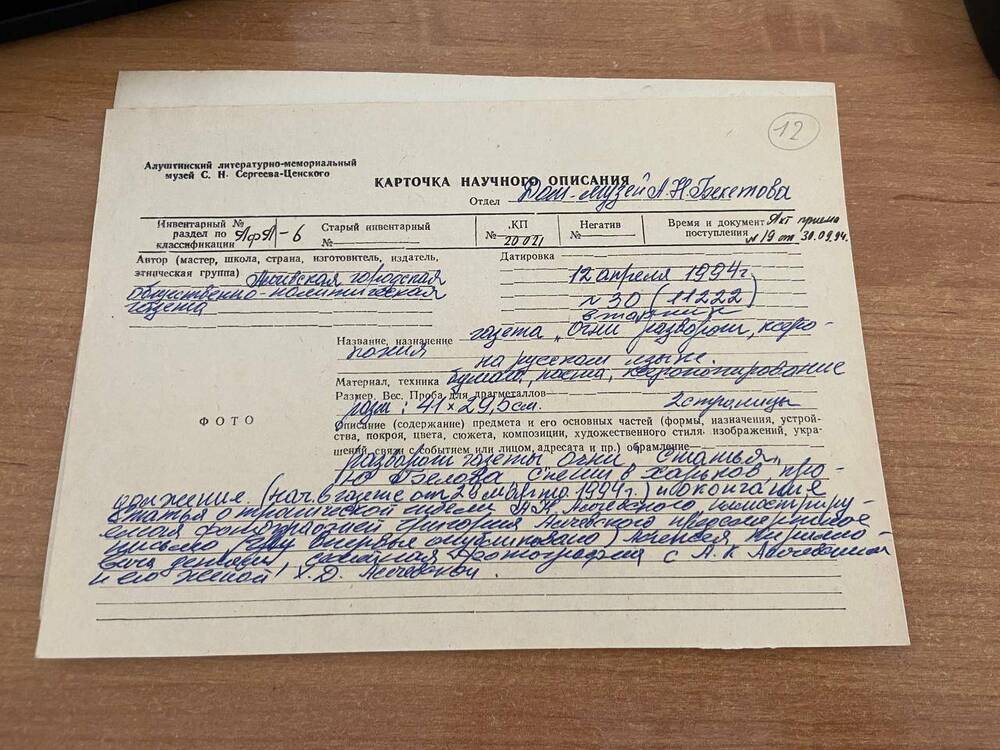 12
Алуштинский литературно-мемориальный
музей С. Н. Сергеева-Ценского
КАРТОЧКА НАУЧНОГО ОПИСАНИЯ
Отдел Дом-музей А.Н. Бекетова
Инвентарный №
раздел по
классификации АфА-6
Старый инвентарный
№
КП
№ 20021
Негатив
№
Время и документ Акт приема
поступления №19 от 30.09.94.
Автор (мастер, школа, страна, изготовитель, издатель,
этническая группа) городская
общественно-политическая
газета
Датировка
12 апреля 1994г
№ 30 (11222)
вторник
Название, назначение газета „Огни разворот, ксеро-
копия на русском языке.
Материал, техника бумага, паста, ксерокопирование
Размер. Вес. Проба для драгметаллов
разм: 41×29,5 см. 2 страницы
Описание (содержание) предмета и его основных частей (формы, назначения, устрой-
ства, покроя, цвета, сюжета, композиции, художественного стиля изображений, укра-
шений, связи с событием или лицом, адресата и пр.) обрамление
ФОТО
разворот газеты Огни Статья
Ю Белова Спеши в Харьков про-
должение. (нач. в газете от 29 марта 1994г.) и окончания
Статья о трагической гибели А.К. Алчевского,
фотографией Григория Алчевского предсмертное
письмо впервые опубликовано) Алексея
фотография с А.К Алчевским
и его женой Х.Д. Алчевской.